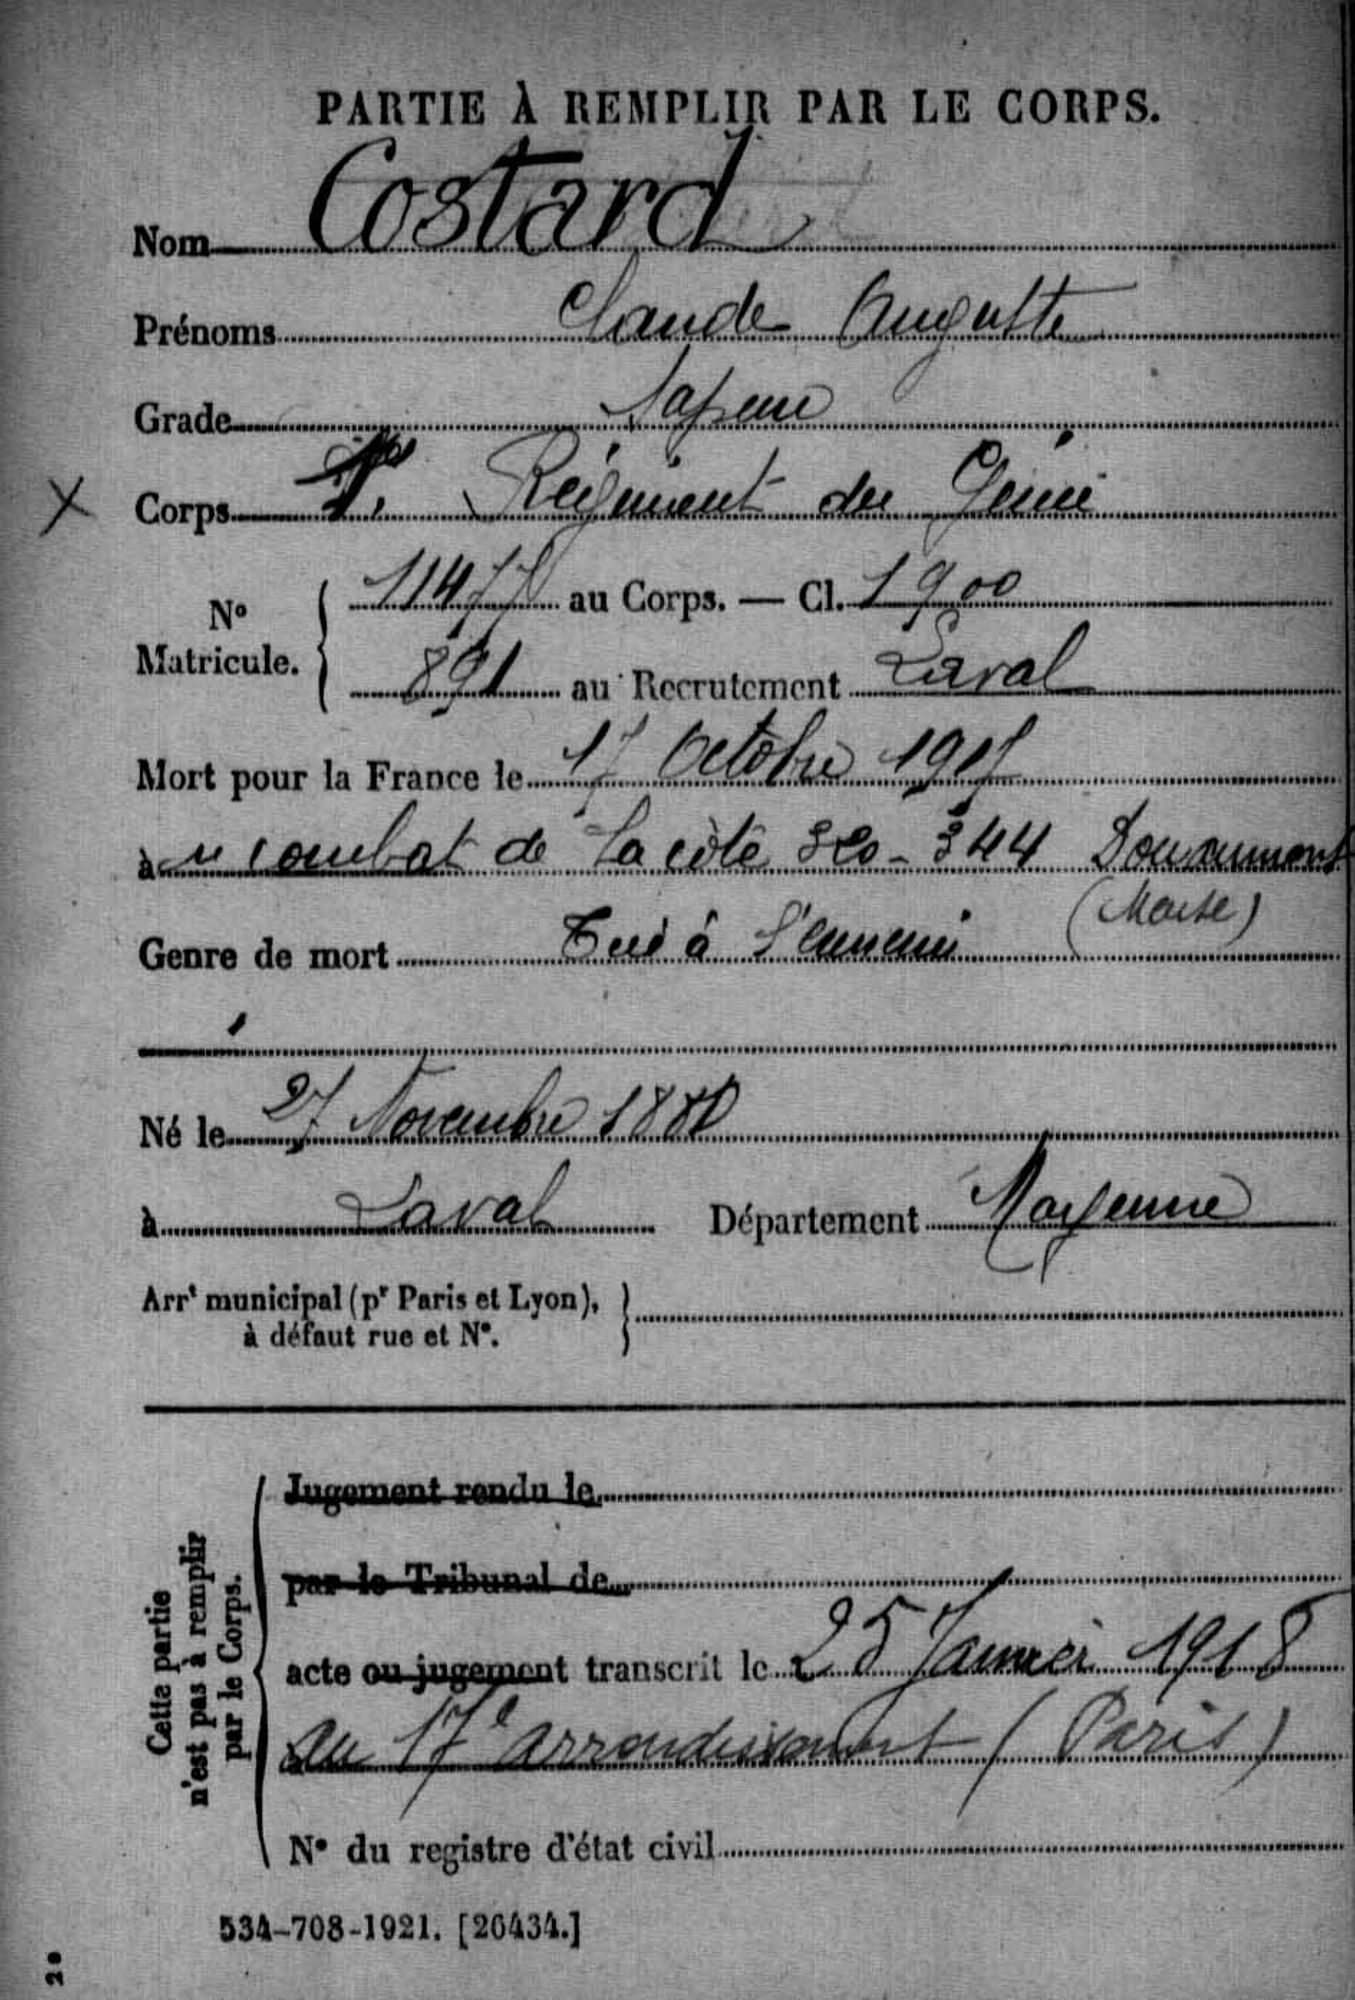 PARTIE À REMPLIR PAR LE CORPS.
Nom Costard
Prénoms Claude Auguste
Grade Sapeur
Corps Régiment du Génie
11477 au Corps. — Cl. 1900
N°
Matricule.
891 au Recrutement Laval
Mort pour la France le 17 Octobre 1917
à u combat de la côte 320 - 344 Douaumont
(Meuse)
Genre de mort Tué à l'ennemi
Né le 27 Novembre 1880
à Laval Département Mayenne
Arrt municipal (pr Paris et Lyon),
à défaut rue et N°.
Cette partie
n'est pas à remplir
par le Corps.
Jugement rendu le
par le Tribunal de
acte ou jugement transcrit le 25 Janvier 1918
au 17e arrondissement (Paris)
N° du registre d'état civil
534-708-1921. [26434.]